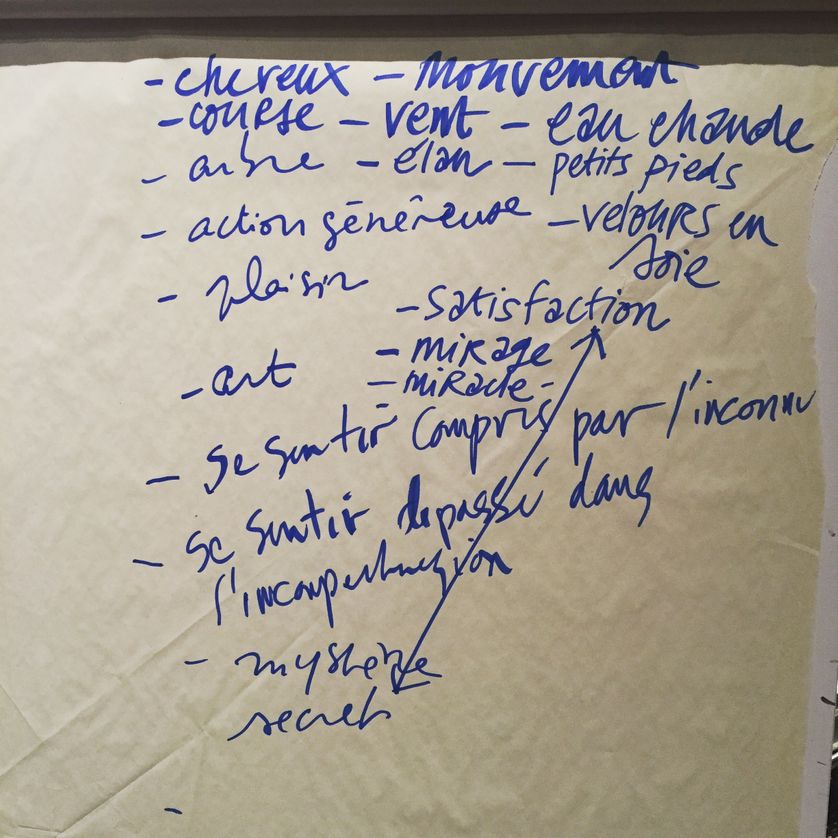 - cheveux - Mouvement
- course - vent - eau chaude
- arbre - élan - petits pieds
- action généreuse - velours en
soie
- plaisir
- satisfaction
- mirage
- art - miracle -
- se sentir compris par l'inconnu
- se sentir dépassé dans
l'incompréhension
- mystère
secret
-